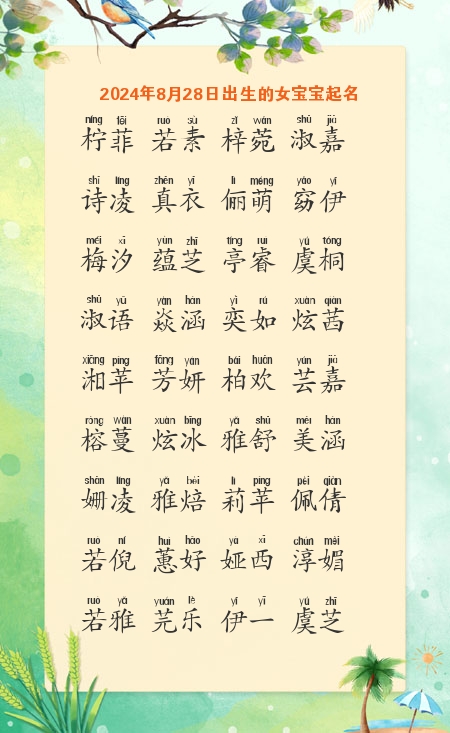 2024年8月28日出生的女宝宝起名
níng fēi ruò sù zǐ wǎn shū jiā
柠菲 若素 梓菀 淑嘉
shī líng zhēn yī lì méng yǎo yī
诗凌 真衣 俪萌 窈伊
méi xī yùn zhī tíng ruì yú tóng
梅汐 蕴芝 亭睿 虞桐
shū yǔ yàn hán yì rú xuàn qiàn
淑语 焱涵 奕如 炫茜
xiāng píng fāng yán bǎi huān yún jiā
湘苹 芳妍 柏欢 芸嘉
róng wàn xuàn bīng yǎ shū měi hán
榕蔓 炫冰 雅舒 美涵
shān líng yǎ bèi lì píng pèi qiàn
姗凌 雅焙 莉苹 佩倩
ruò ní huì hǎo yà xī chún mèi
若倪 蕙好 娅西 淳媚
ruò yǎ yuán lè yī yī yú zhī
若雅 芫乐 伊一 虞芝